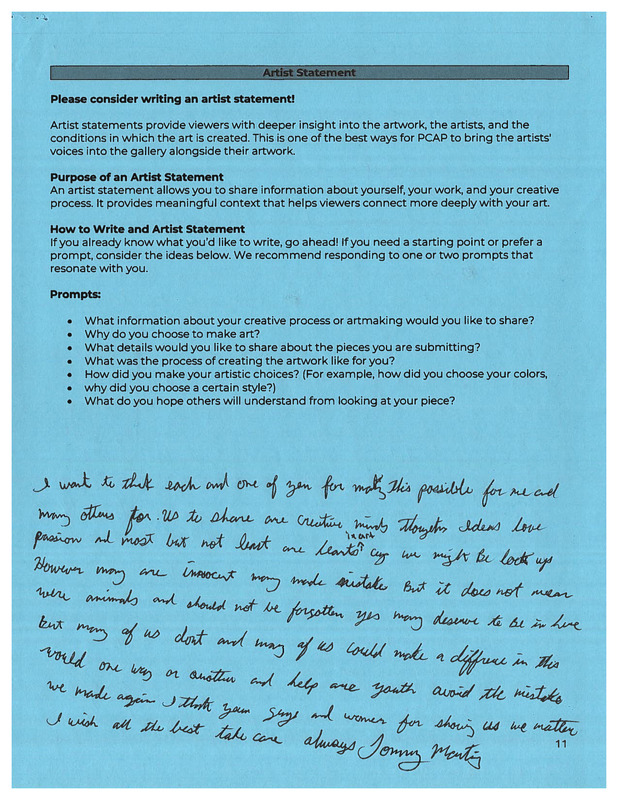 Artist Statement
Please consider writing an artist statement!
Artist statements provide viewers with deeper insight into the artwork, the artists, and the
conditions in which the art is created. This is one of the best ways for PCAP to bring the artists'
voices into the gallery alongside their artwork.
Purpose of an Artist Statement
An artist statement allows you to share information about yourself, your work, and your creative
process. It provides meaningful context that helps viewers connect more deeply with your art.
How to Write and Artist Statement
If you already know what you'd like to write, go ahead! If you need a starting point or prefer a
prompt, consider the ideas below. We recommend responding to one or two prompts that
resonate with you.
Prompts:
• What information about your creative process or artmaking would you like to share?
• Why do you choose to make art?
• What details would you like to share about the pieces you are submitting?
• What was the process of creating the artwork like for you?
• How did you make your artistic choices? (For example, how did you choose your colors,
• why did you choose a certain style?)
• What do you hope others will understand from looking at your piece?
I want to each and one of for this possible for me and
many others for us to share are creative minds thoughts Ideas love
in art
passion and most but not least are hearts we might Be up
However many are innocent many made mistake But it does not mean
were animals and should not be forgotten yes many deserve to Be in here
But many of us dont and many of us could make a in this
would one way or another and help are youth avoid the mistake
we made again I guys and women for showing us we matter
I wish all the best take care always Martin
11